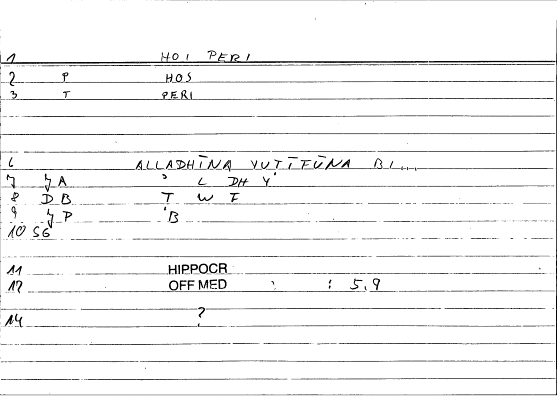 1 HOI PERI
2 P HOS
3 T PERI
6 ALLADHĪNA YUṬĪFŪNA BI...
7 A ʾ L DH Y
8 DB T W F
9 P B
10 SG
11 HIPPOCR
12 OFF MED : 5,9
14 ?